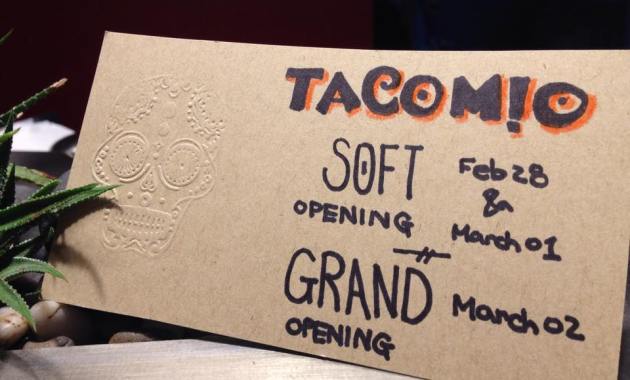 TACOM!O
SOFT
OPENING
Feb 28
&
March 01
GRAND
OPENING
March 02